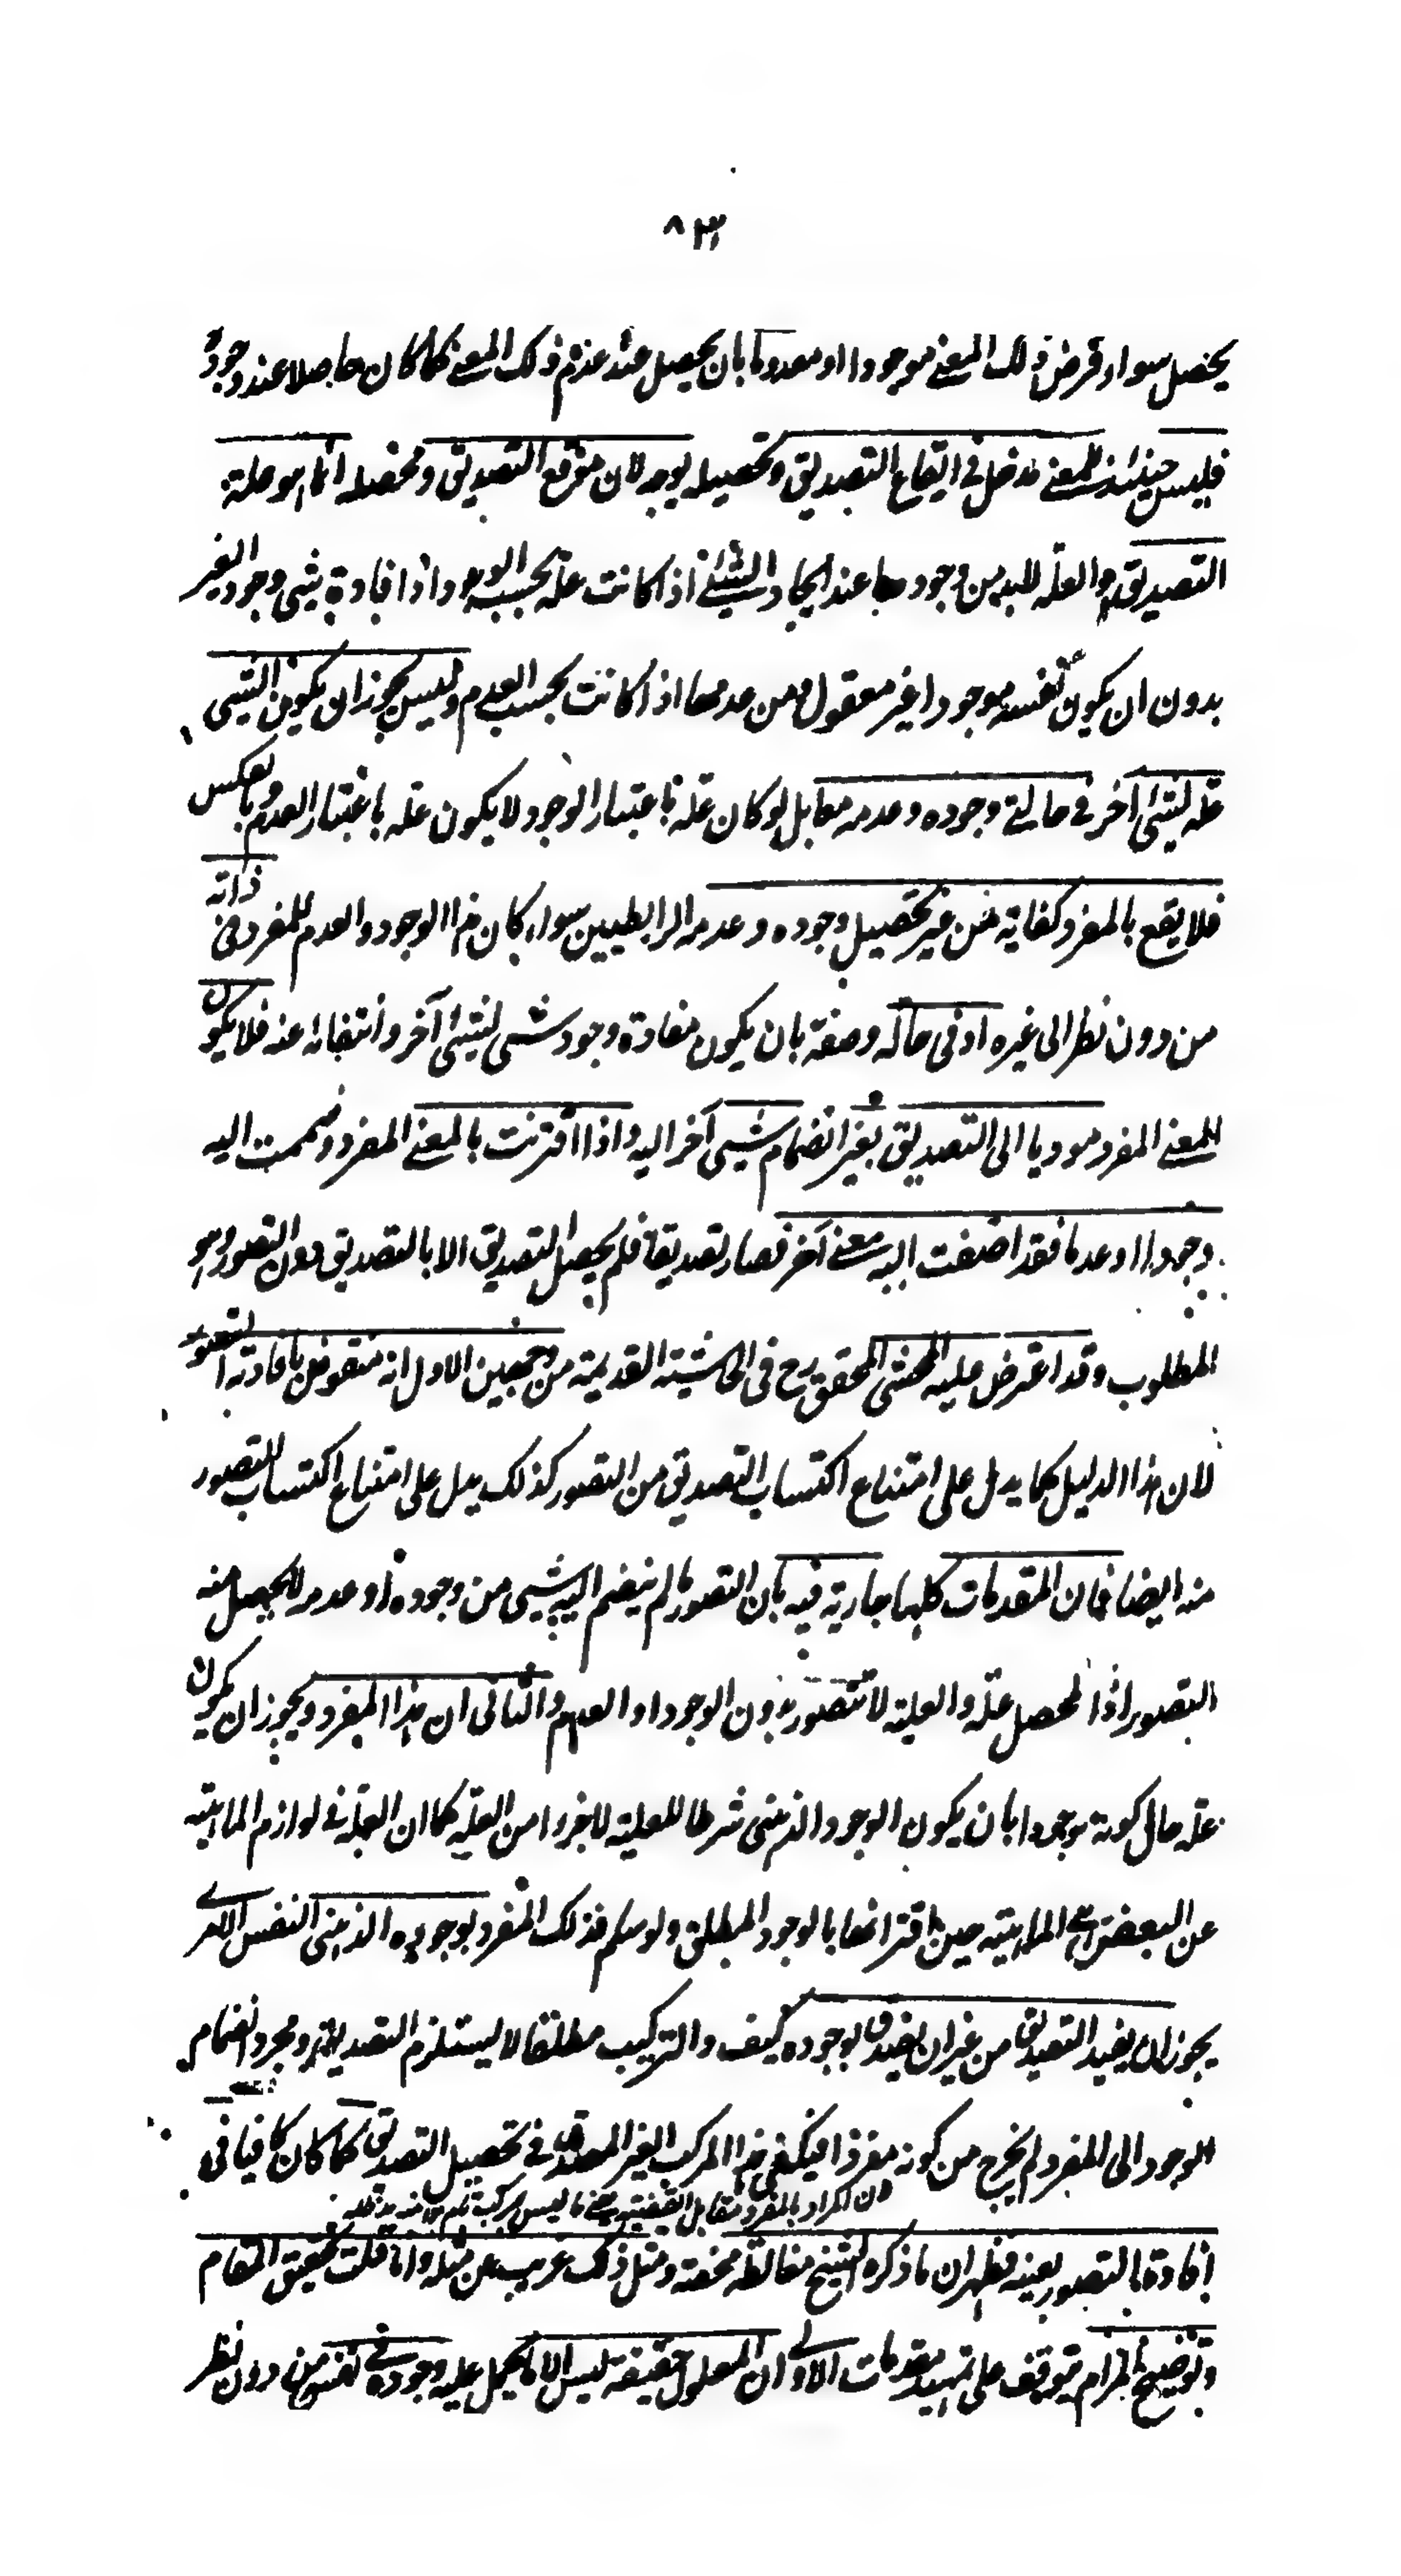 ٨٣
يحصل سواء فرض ذلك المعنى موجودا او معدوما بان يحصل عند عدم ذلك المعنى كما كان حاصلا عند وجوده
فليس حينئذ للمعنى مدخل في ايقاع التصديق وتحصيله بوجه لان موقع التصديق ومحصله انما هو علة
التصديق والعلة لابد من وجودها عند ايجاد الشيئ اذا كانت علة بحسب الوجود اذ افادة شيئ وجود الغير
بدون ان يكون نفسه موجودا غير معقول ومن عدمها اذا كانت بحسب العدم وليس يجوز ان يكون الشيئ
علة لشيئ آخر في حالتي وجوده وعدمه معا بل لو كان علة باعتبار الوجود لا يكون علة باعتبار العدم وبالعكس
فلا يقع بالمفرد كفاية من غير تحصيل وجوده وعدمه الرابطيين سواء كان هذا الوجود والعدم للمفرد في ذاته
من دون نظر الى غيره او في حاله وصفته بان يكون مفاده وجود شيئ لشيئ آخر وانتفائه عنه فلا يكون
للمعنى المفرد موديا الى التصديق بغير انضمام شيئ آخر اليه واذا اقترنت بالمعنى المفرد وضممت اليه
وجودا او عدما فقد اضفت اليه معنى آخر فصار تصديقا فلم يحصل التصديق الا بالتصديق دون التصور وهو
المطلوب وقد اعترض عليه المحشى المحقق رح في الحاشية القديمة من وجهين الاول انه منقوض بافادته التصور
لان هذا الدليل كما يدل على امتناع اكتساب التصديق من التصور كذلك يدل على امتناع اكتساب التصور
منه ايضا فان المقدمات كلها جارية فيه بان التصور ما لم ينضم اليه شيئ من وجوده او عدمه لا يحصل منه
التصور اذ المحصل علة والعلية لا تتصور بدون الوجود او العدم والثاني ان هذا المفرد ويجوز ان يكون
علة حال كونه موجودا بان يكون الوجود الذهني شرطا للعلية لا جزوا من العلة كما ان العلة في لوازم الماهية
عن البعض هي الماهية حين اقترانها بالوجود المطلق ولو سلم فذلك المفرد بوجوده الذهني النفس الامري
يجوز ان يفيد التصديق من غير ان يصدق بوجوده كيف والتركيب مطلقا لا يستلزم التصديق ومجرد انضمام
الوجود الى المفرد لم يخرج من كونه مفردا فيكفي هذا المركب الغير المصدق في تحصيل التصديق كما كان كافيا في
لان المراد بالمفرد مقابل القضية يعنى ما ليس مركب تام
افادة التصور بعينه فظهر ان ما ذكره الشيخ مغالطة محضة ومثل ذلك غريب عن مثله وانا قلت تحقيق المقام
وتوضيح المرام يتوقف على تمهيد مقدمات الاولى ان المعلول حقيقة ليس الا ما يحمل عليه وجوده في نفسه من دون نظر